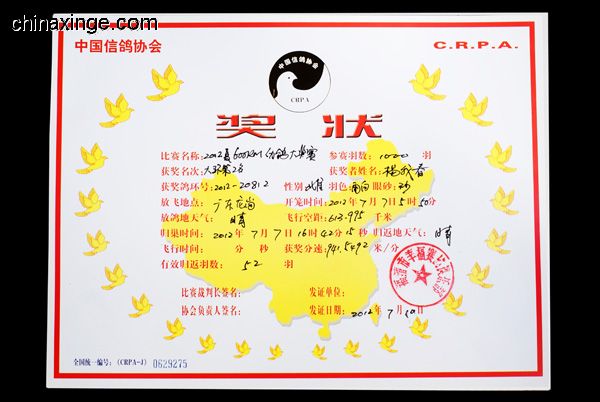 chinaxinge.com
中国信鸽协会
C.R.P.A.
中国信鸽协会
CRPA
奖状
比赛名称:2012夏600KM 大奖赛 参赛羽数: 羽
获奖名次: 获奖者姓名:杨 春
获奖鸽环号:2012-20812 性别:雄 羽色:雨白 眼砂:砂
放飞地点:广东 开笼时间:2012年7月7日5时50分
放鸽地天气:晴 飞行空距:613.975千米
归巢时间:2012年7月7日16时42分15秒 归返地天气:晴
飞行时间: 分 秒 获奖分速:941.5492米/分
有效归返羽数:52 羽
比赛裁判长签名: 发证单位:
协会负责人签名: 发证日期:2012年7月10日
全国统一编号:(CRPA-J) 0629275